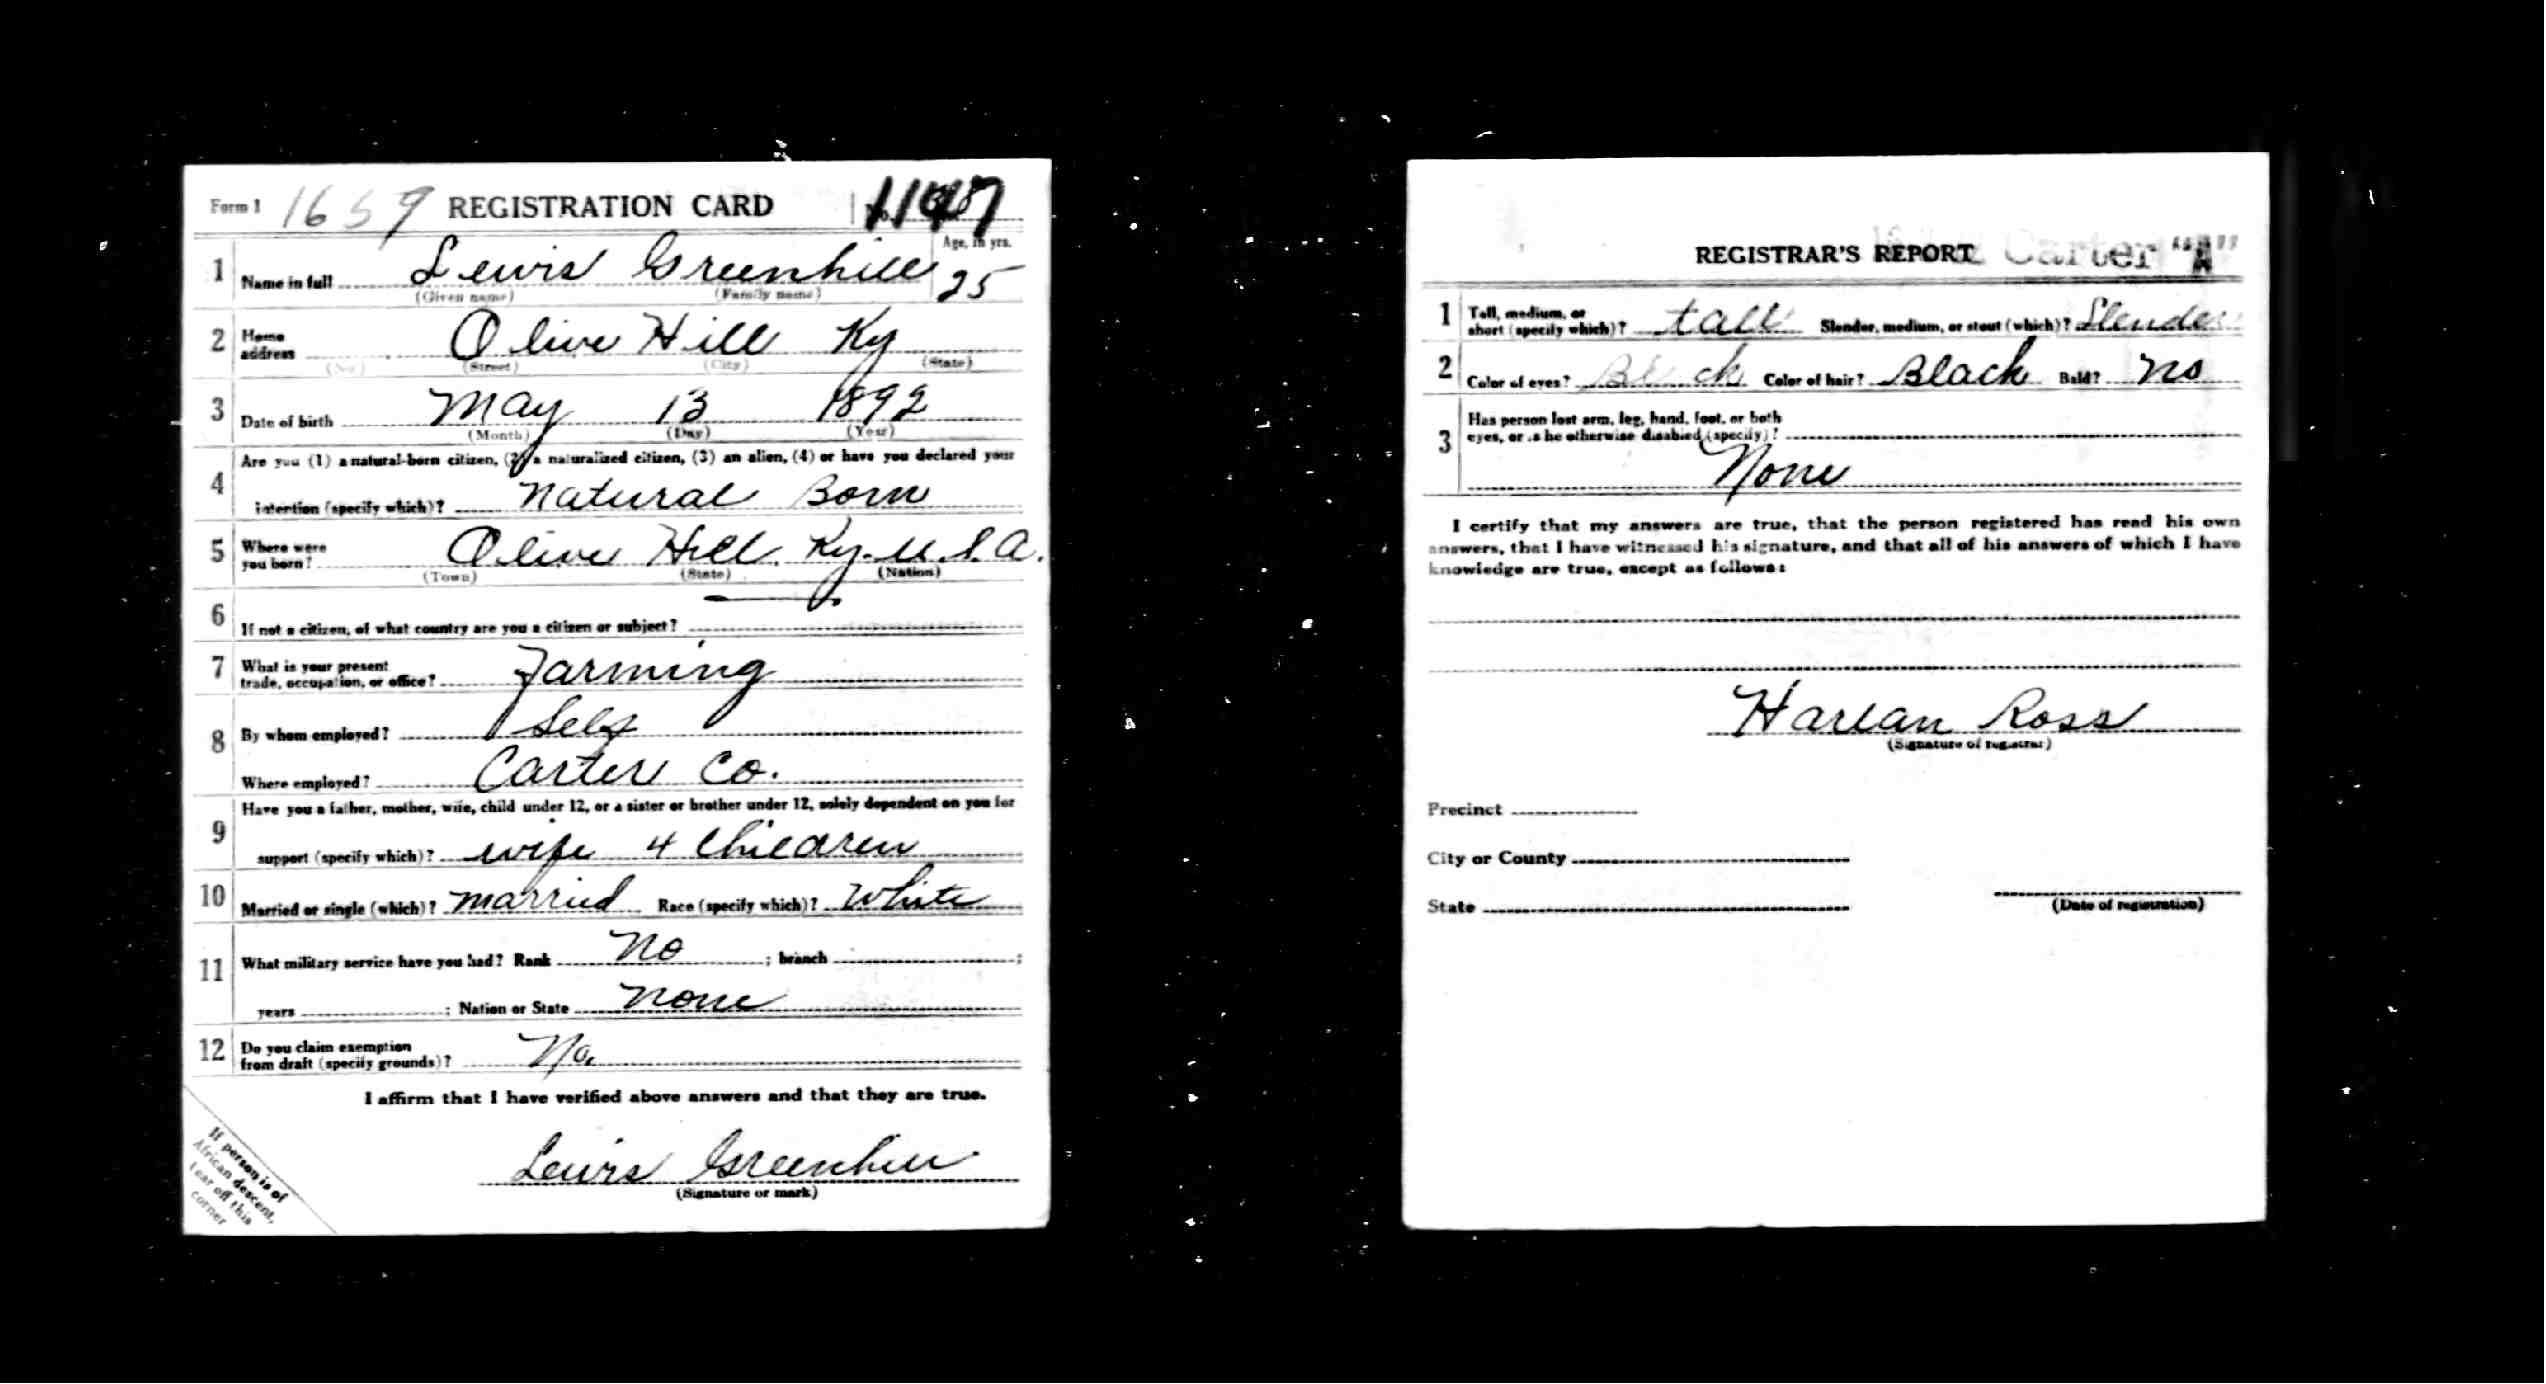 Form 1 1659 REGISTRATION CARD No.
1 Name in full Lewis Greenhill Age, in yrs. 25
(Given name) (Family name)
2 Home address Olive Hill Ky
(No.) (Street) (City) (State)
3 Date of birth May 13 1892
(Month) (Day) (Year)
4 Are you (1) a natural-born citizen, (2) a naturalized citizen, (3) an alien, (4) or have you declared your
intention (specify which)? Natural Born
5 Where were you born? Olive Hill Ky. U.S.A.
(Town) (State) (Nation)
6 If not a citizen, of what country are you a citizen or subject?
7 What is your present trade, occupation, or office? Farming
8 By whom employed? Self
Where employed? Carter Co.
9 Have you a father, mother, wife, child under 12, or a sister or brother under 12, solely dependent on you for
support (specify which)? wife 4 Children
10 Married or single (which)? married Race (specify which)? White
11 What military service have you had? Rank No ; branch ;
years ; Nation or State none
12 Do you claim exemption from draft (specify grounds)? No.
I affirm that I have verified above answers and that they are true.
Lewis Greenhill
(Signature or mark)
If person is of
African descent,
tear off this
corner
REGISTRAR'S REPORT Carter "A"
1 Tall, medium, or short (specify which)? tall Slender, medium, or stout (which)? Slender
2 Color of eyes? Black Color of hair? Black Bald? No
3 Has person lost arm, leg, hand, foot, or both
eyes, or is he otherwise disabled (specify)?
None
I certify that my answers are true, that the person registered has read his own
answers, that I have witnessed his signature, and that all of his answers of which I have
knowledge are true, except as follows:
Harlan Ross
(Signature of registrar)
Precinct
City or County
State
(Date of registration)